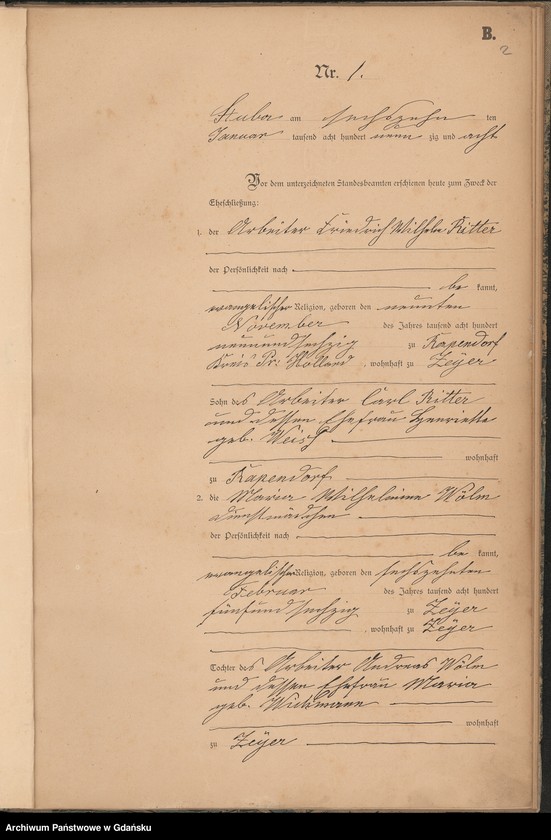 B.
2
Nr. 1.
Stuba am sechszehn ten
Januar tausend acht hundert neun zig und acht
Vor dem unterzeichneten Standesbeamten erschienen heute zum Zweck der
Eheschließung:
1. der Arbeiter Friedrich Wilhelm Ritter
der Persönlichkeit nach
be kannt,
evangelischer Religion, geboren den neunten
November des Jahres tausend acht hundert
neunundsechzig zu Kapendorf
Kreis Pr: Holland, wohnhaft zu Zeyer
Sohn des Arbeiter Carl Ritter
und dessen Ehefrau Henriette
geb. Weiss
wohnhaft
zu Kapendorf
2. die Maria Wilhelmine Wölm
Dienstmädchen
der Persönlichkeit nach
be kannt,
evangelischer Religion, geboren den sechszehnten
Februar des Jahres tausend acht hundert
fünfundsechzig zu Zeyer
, wohnhaft zu Zeyer
Tochter des Arbeiter Andreas Wölm
und dessen Ehefrau Maria
geb.
wohnhaft
zu Zeyer
Archiwum Państwowe w Gdańsku